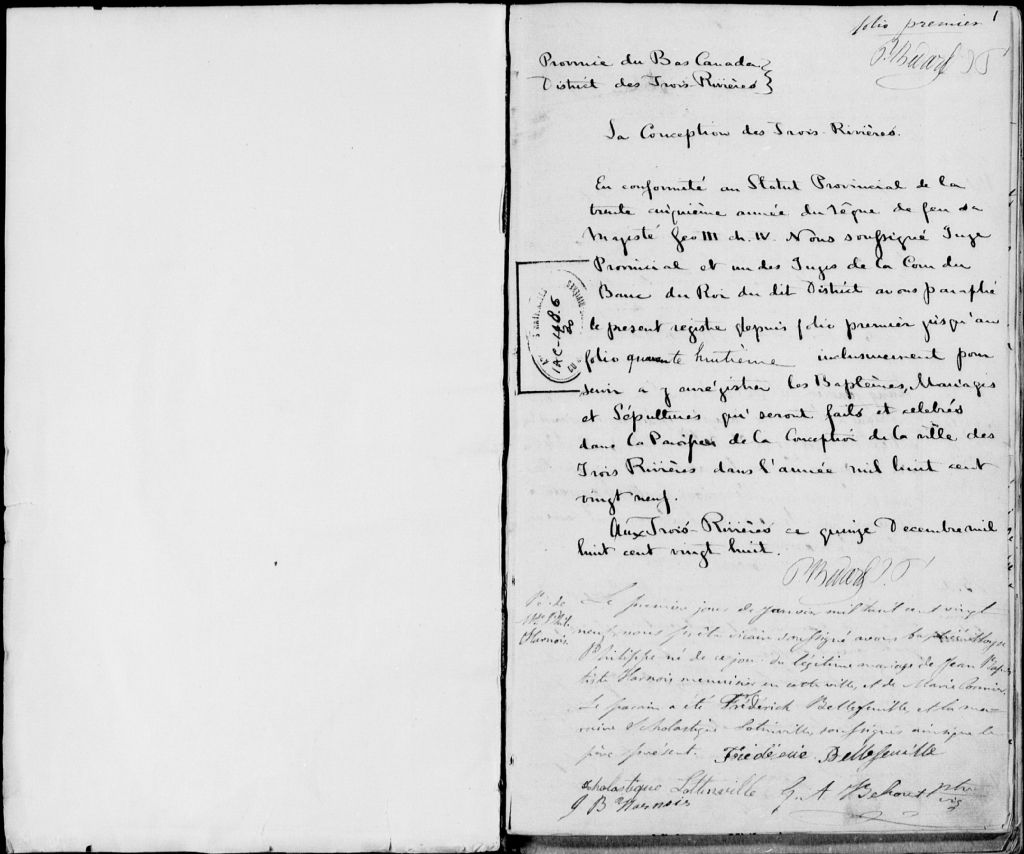 folio premier
1
P. Bédard J T
Province du Bas Canada
District des Trois-Rivières
La Conception des Trois-Rivières.
En conformité au Statut Provincial de la
trente cinquième année du règne de feu sa
Majesté Geo III ch. IV. Nous soussigné Juge
Provincial et un des Juges de la Cour du
Banc du Roi du dit District avons paraphé
le present registre depuis folio premier jusqu'au
folio quarante huitième inclusivement pour
servir a y enrégistrer les Baptêmes, Mariages
et Sépultures qui seront faits et célébrés
dans la Paroisse de la Conception de la ville des
Trois Rivières dans l'année mil huit cent
vingt neuf.
Aux Trois-Rivières ce quinze Decembre mil
huit cent vingt huit.
P. Bédard J. T
IAC-4486
20
Le premier jour de janvier mil huit cent vingt
neuf, nous prêtre vicaire soussigné avons baptisé
Philippe né de ce jour du légitime mariage de Jean Bap-
tiste Harnois menuisier en cette ville, et de Marie Cormier.
Le parain a été Frédérick Bellefeuille et la ma-
raine Scholastique Lotinville, soussignés ainsi que le
père présent. Frédéric Bellefeuille
Harnois.
Scholastique Lottinville
J B Harnois